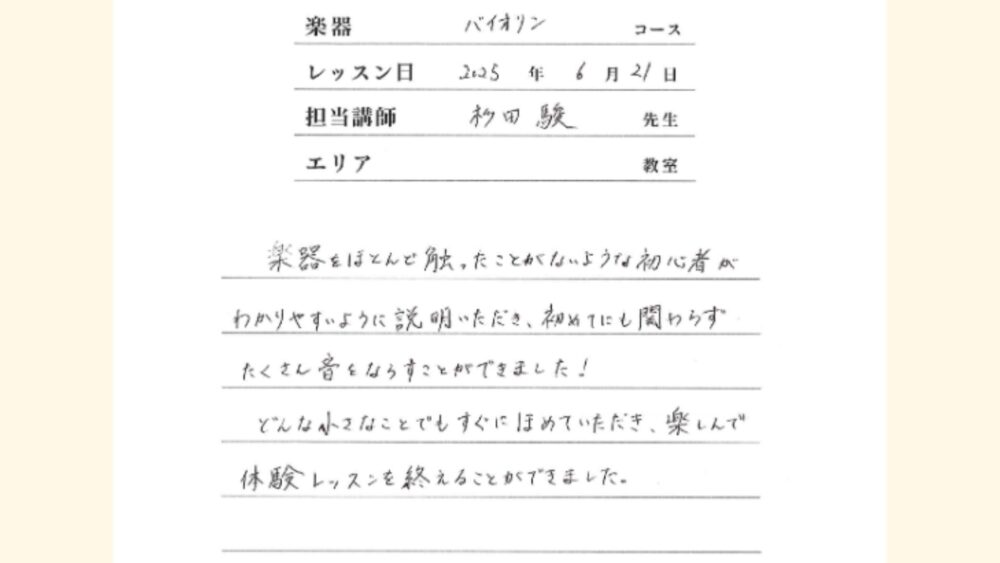 楽器 バイオリン コース
レッスン日 2025 年 6 月 21 日
担当講師 杉田 駿 先生
エリア 教室
楽器をほとんど触ったことがないような初心者が
わかりやすいように説明いただき、初めてにも関わらず
たくさん音をならすことができました!
どんな小さなことでもすぐにほめていただき、楽しんで
体験レッスンを終えることができました。